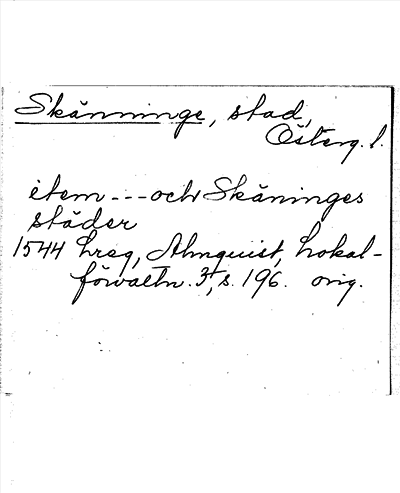 Skänninge, stad,
Österg. l.
item --- och Skäninges
städer
1544 hreg, Almquist, Lokal-
förvaltn. 3, s. 196. orig.